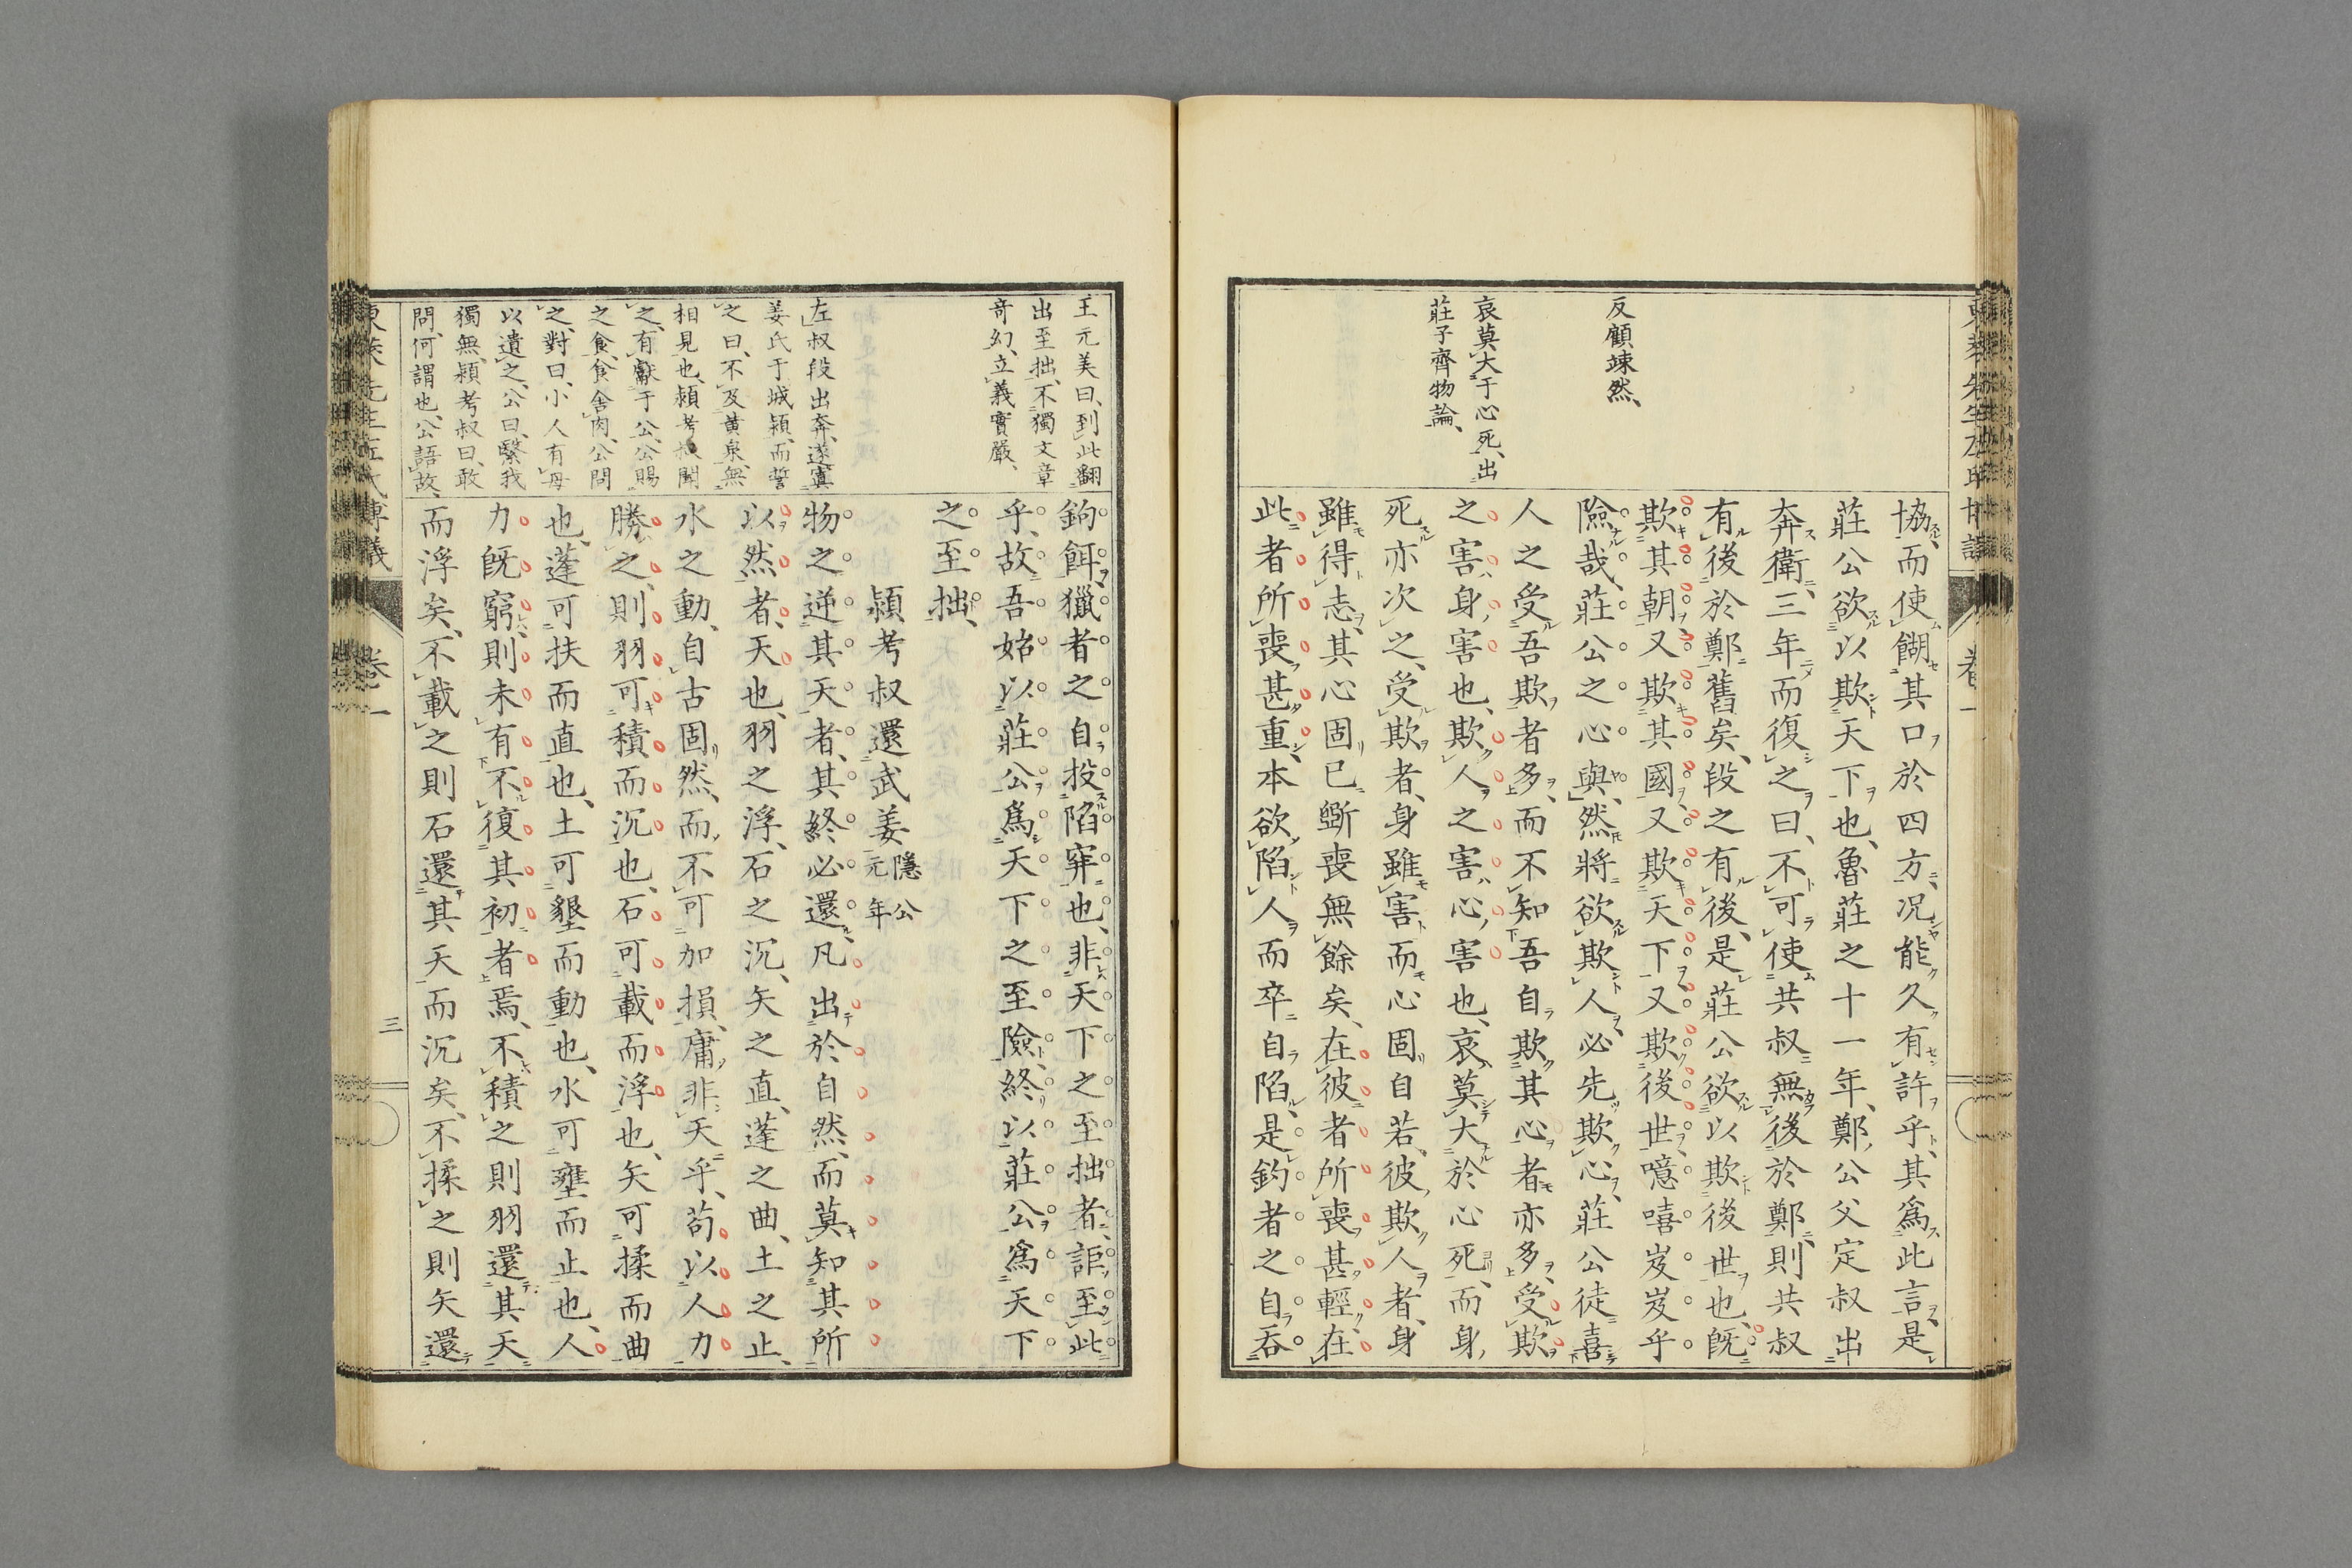 反顧竦然、
哀莫大于心死、出
莊子齊物論、
協而使餬其口於四方、况能久有許乎、其爲此言、是
莊公欲以欺天下也、魯莊之十一年、鄭公父定叔出
奔衛、三年而復之曰、不可使共叔無後於鄭、則共叔
有後於鄭舊矣、段之有後、是莊公欲以欺後世也、既
欺其朝、又欺其國、又欺天下、又欺後世、噫嘻岌岌乎
險哉、莊公之心與、然將欲欺人、必先欺心、莊公徒喜
人之受吾欺者多、而不知吾自欺其心者亦多、受欺
之害、身害也、欺人之害、心害也、哀莫大於心死、而身
死亦次之、受欺者、身雖害而心固自若、彼欺人者、身
雖得志、其心固已斲喪無餘矣、在彼者所喪甚輕、在
此者所喪甚重、本欲陷人而卒自陷、是鈎者之自呑
王元美曰、到此翻
出至拙、不獨文章
奇幻、立義實嚴、
左叔段出奔、遂寘
姜氏于城潁、而誓
之曰、不及黃泉、無
相見也、潁考叔聞
之、有獻于公、公賜
之食、食舍肉、公問
之、對曰、小人有母
以遺之、公曰、繄我
獨無、潁考叔曰、敢
問、何謂也、公語故、
鉤餌、獵者之自投陷穽也、非天下之至拙者、詎至此
乎、故吾始以莊公爲天下之至險、終以莊公爲天下
之至拙、
潁考叔還武姜 隱公元年
物之逆其天者、其終必還、凡出於自然、而莫知其所
以然者、天也、羽之浮、石之沉、矢之直、蓬之曲、土之止、
水之動、自古固然、而不可加損、庸非天乎、苟以人力
勝之、則羽可積而沉也、石可載而浮也、矢可揉而曲
也、蓬可扶而直也、土可墾而動也、水可壅而止也、人
力既窮、則未有不復其初者焉、不積之則羽還其天
而浮矣、不載之則石還其天而沉矣、不揉之則矢還
卷一
三